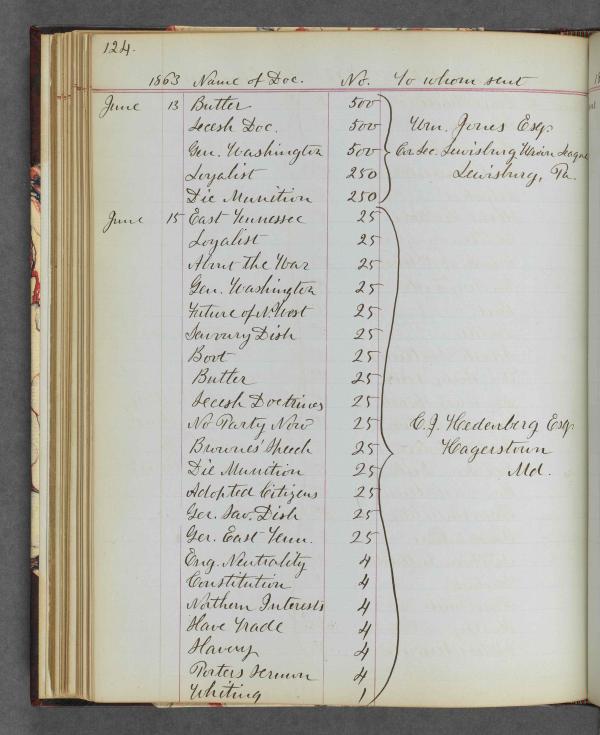 124.
1863 Name of Doc. No. To whom sent
June 13 Butler 500
Secesh Doc. 500 Wm. Jones Esq.
Gen. Washington 500 Cor. Sec. Lewisburg Union League
Loyalist 250 Lewisburg, Pa.
Die Munition 250
June 15 East Tennessee 25
Loyalist 25
About the War 25
Gen. Washington 25
Future of N. West 25
Savoury Dish 25
Bovt 25
Butler 25
Secesh Doctrines 25
No Party Now 25 C. J. Hedenberg Esq.
Brownes' Speech 25 Hagerstown
Die Munition 25 Md.
Adopted Citizens 25
Ger. Sav. Dish 25
Ger. East Tenn. 25
Eng. Neutrality 4
Constitution 4
Northern Interests 4
Slave Trade 4
Slavery 4
Porters Sermon 4
Whiting 1